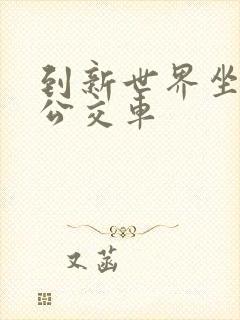 到新世界坐
公交车
又菡